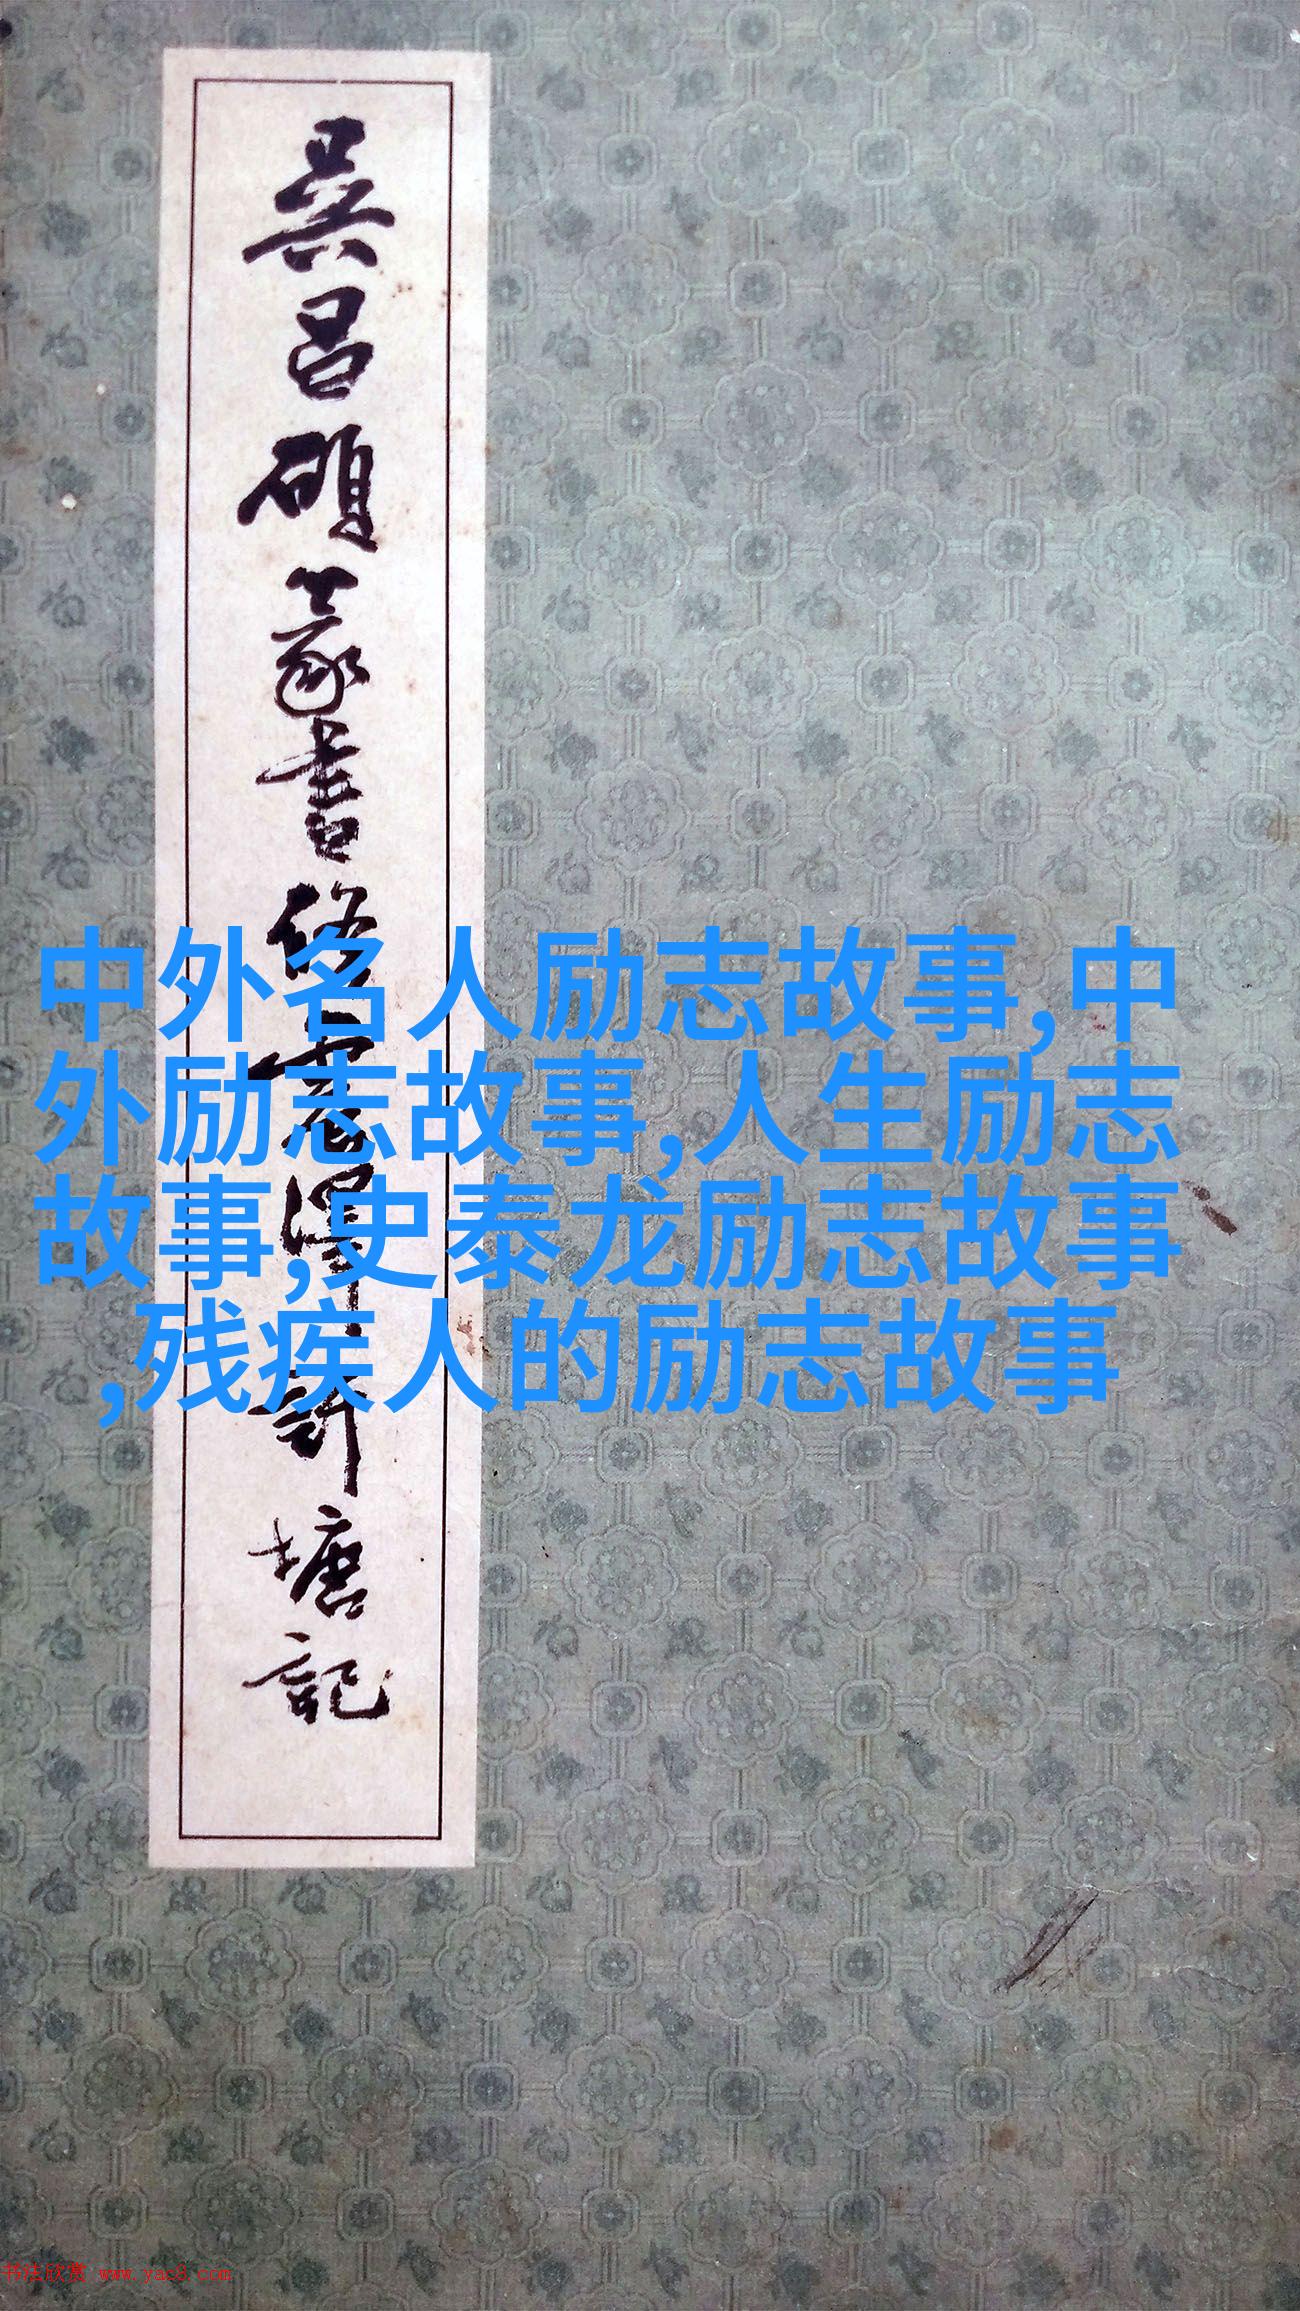 吴昌硕篆书修震泽许塘記
中外名人励志故事,中
外励志故事,人生励志
故事,史泰龙励志故事
,残疾人的励志故事
书法欣赏 www.yac8.com